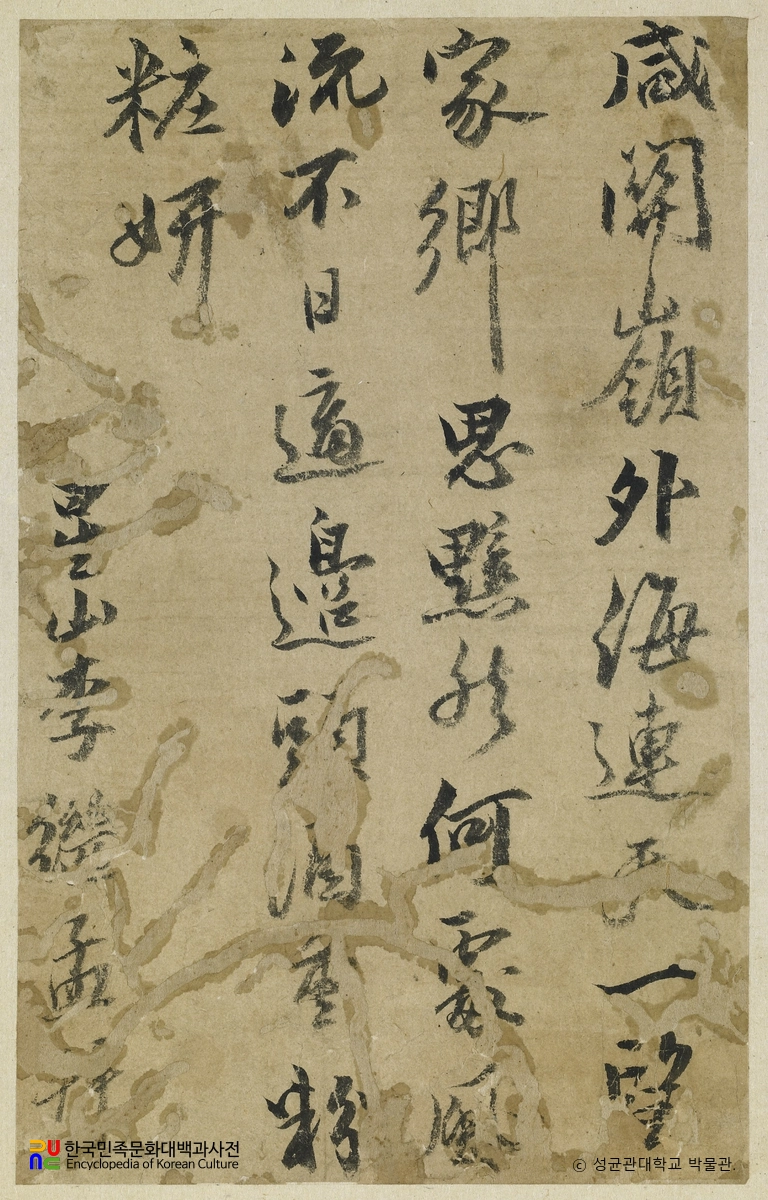 咸關嶺外海連天一望
家鄉思黯然何處風
流不日適邊頭泪重粉
粧妍
星山李繼孟
한국민족문화대백과사전
Encyclopedia of Korean Culture
© 성균관대학교 박물관.